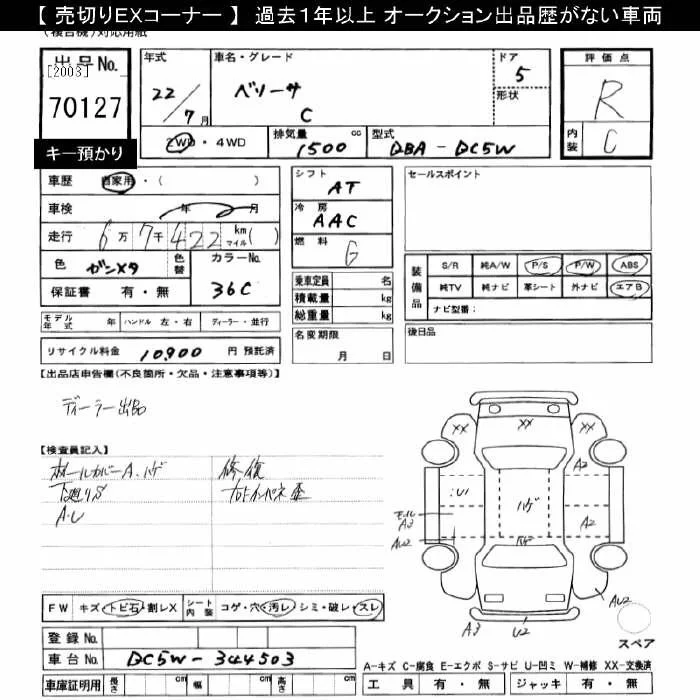 【 売切りEXコーナー 】 過去1年以上 オークション出品歴がない車両
出品No.
[2003]
70127
キー預かり
年式
22/7月
車名・グレード
ベリーサ
C
ドア
5
形状
評価点
R
内装
C
2WD・4WD
排気量 1500 cc
型式 DBA-DC5W
車歴 自家用・( )
車検 年 月
走行 6万7千422 km マイル( )
色 ガンメタ 色替 カラーNo. 36C
保証書 有・無
シフト AT
冷房 AAC
燃料 G
乗車定員 名
積載量 kg
総重量 kg
名変期限 月 日
セールスポイント
装備品 S/R 純A/W P/S P/W ABS
純TV 純ナビ 革シート 外ナビ エアB
ナビ型番:
後日品
モデル年式 年 ハンドル 左・右 ディーラー・並行
リサイクル料金 10,900 円 預託済
【出品店申告欄(不良箇所・欠品・注意事項等)】
ディーラー出品
【検査員記入】
ホイールカバーA.ハゲ
下廻りS
A.U
修復
右インパネ歪
XX XX XX
A2
:U1
ハゲ
モール A3
A2
AU2
ハゲ
A3
U2
AU2
スペア
FW キズ・トビ石・割レX シート内装 コゲ・穴・汚レ・シミ・破レ・スレ
登録No.
車台No. DC5W-344503
車庫証明用 長さ cm 幅 cm 高さ cm
A-キズ C-腐食 E-エクボ S-サビ U-凹ミ W-補修 XX-交換済
工具 有・無 ジャッキ 有・無